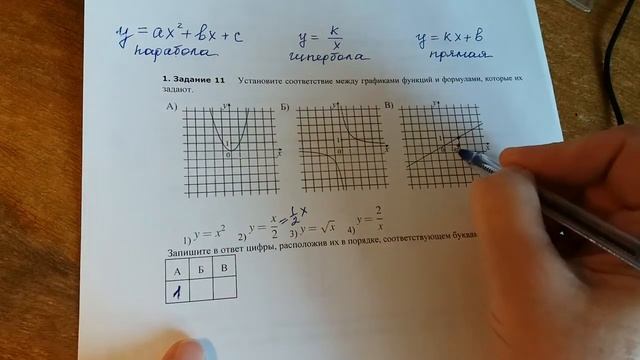 y = ax² + bx + c
парабола
y = k/x
гипербола
y = kx + b
прямая
1. Задание 11 Установите соответствие между графиками функций и формулами, которые их
задают.
А) Б) В)
y y y
1 1 1
0 1 x 0 x 0 x
1) y = x² 2) y = x/2 = 1/2 x 3) y = √x 4) y = 2/x
Запишите в ответ цифры, расположив их в порядке, соответствующем
А Б В
1